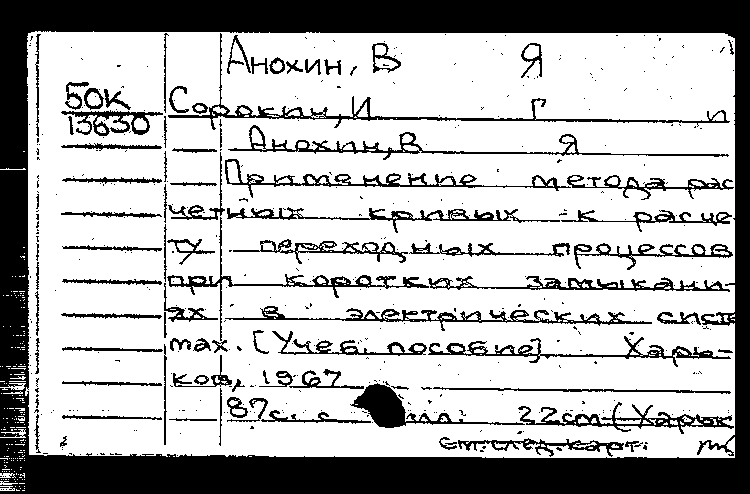 Анохин, В Я
50К Сорокин, И Г п
13630
Анохин, В Я
Применение метода рас
четных кривых к расче
ту переходных процессов
при коротких замыкани-
ях в электрических систе
мах. [Учеб. пособие]. Харь-
ков, 1967
87с. с илл. 22см (Харьк
см. след. карт.